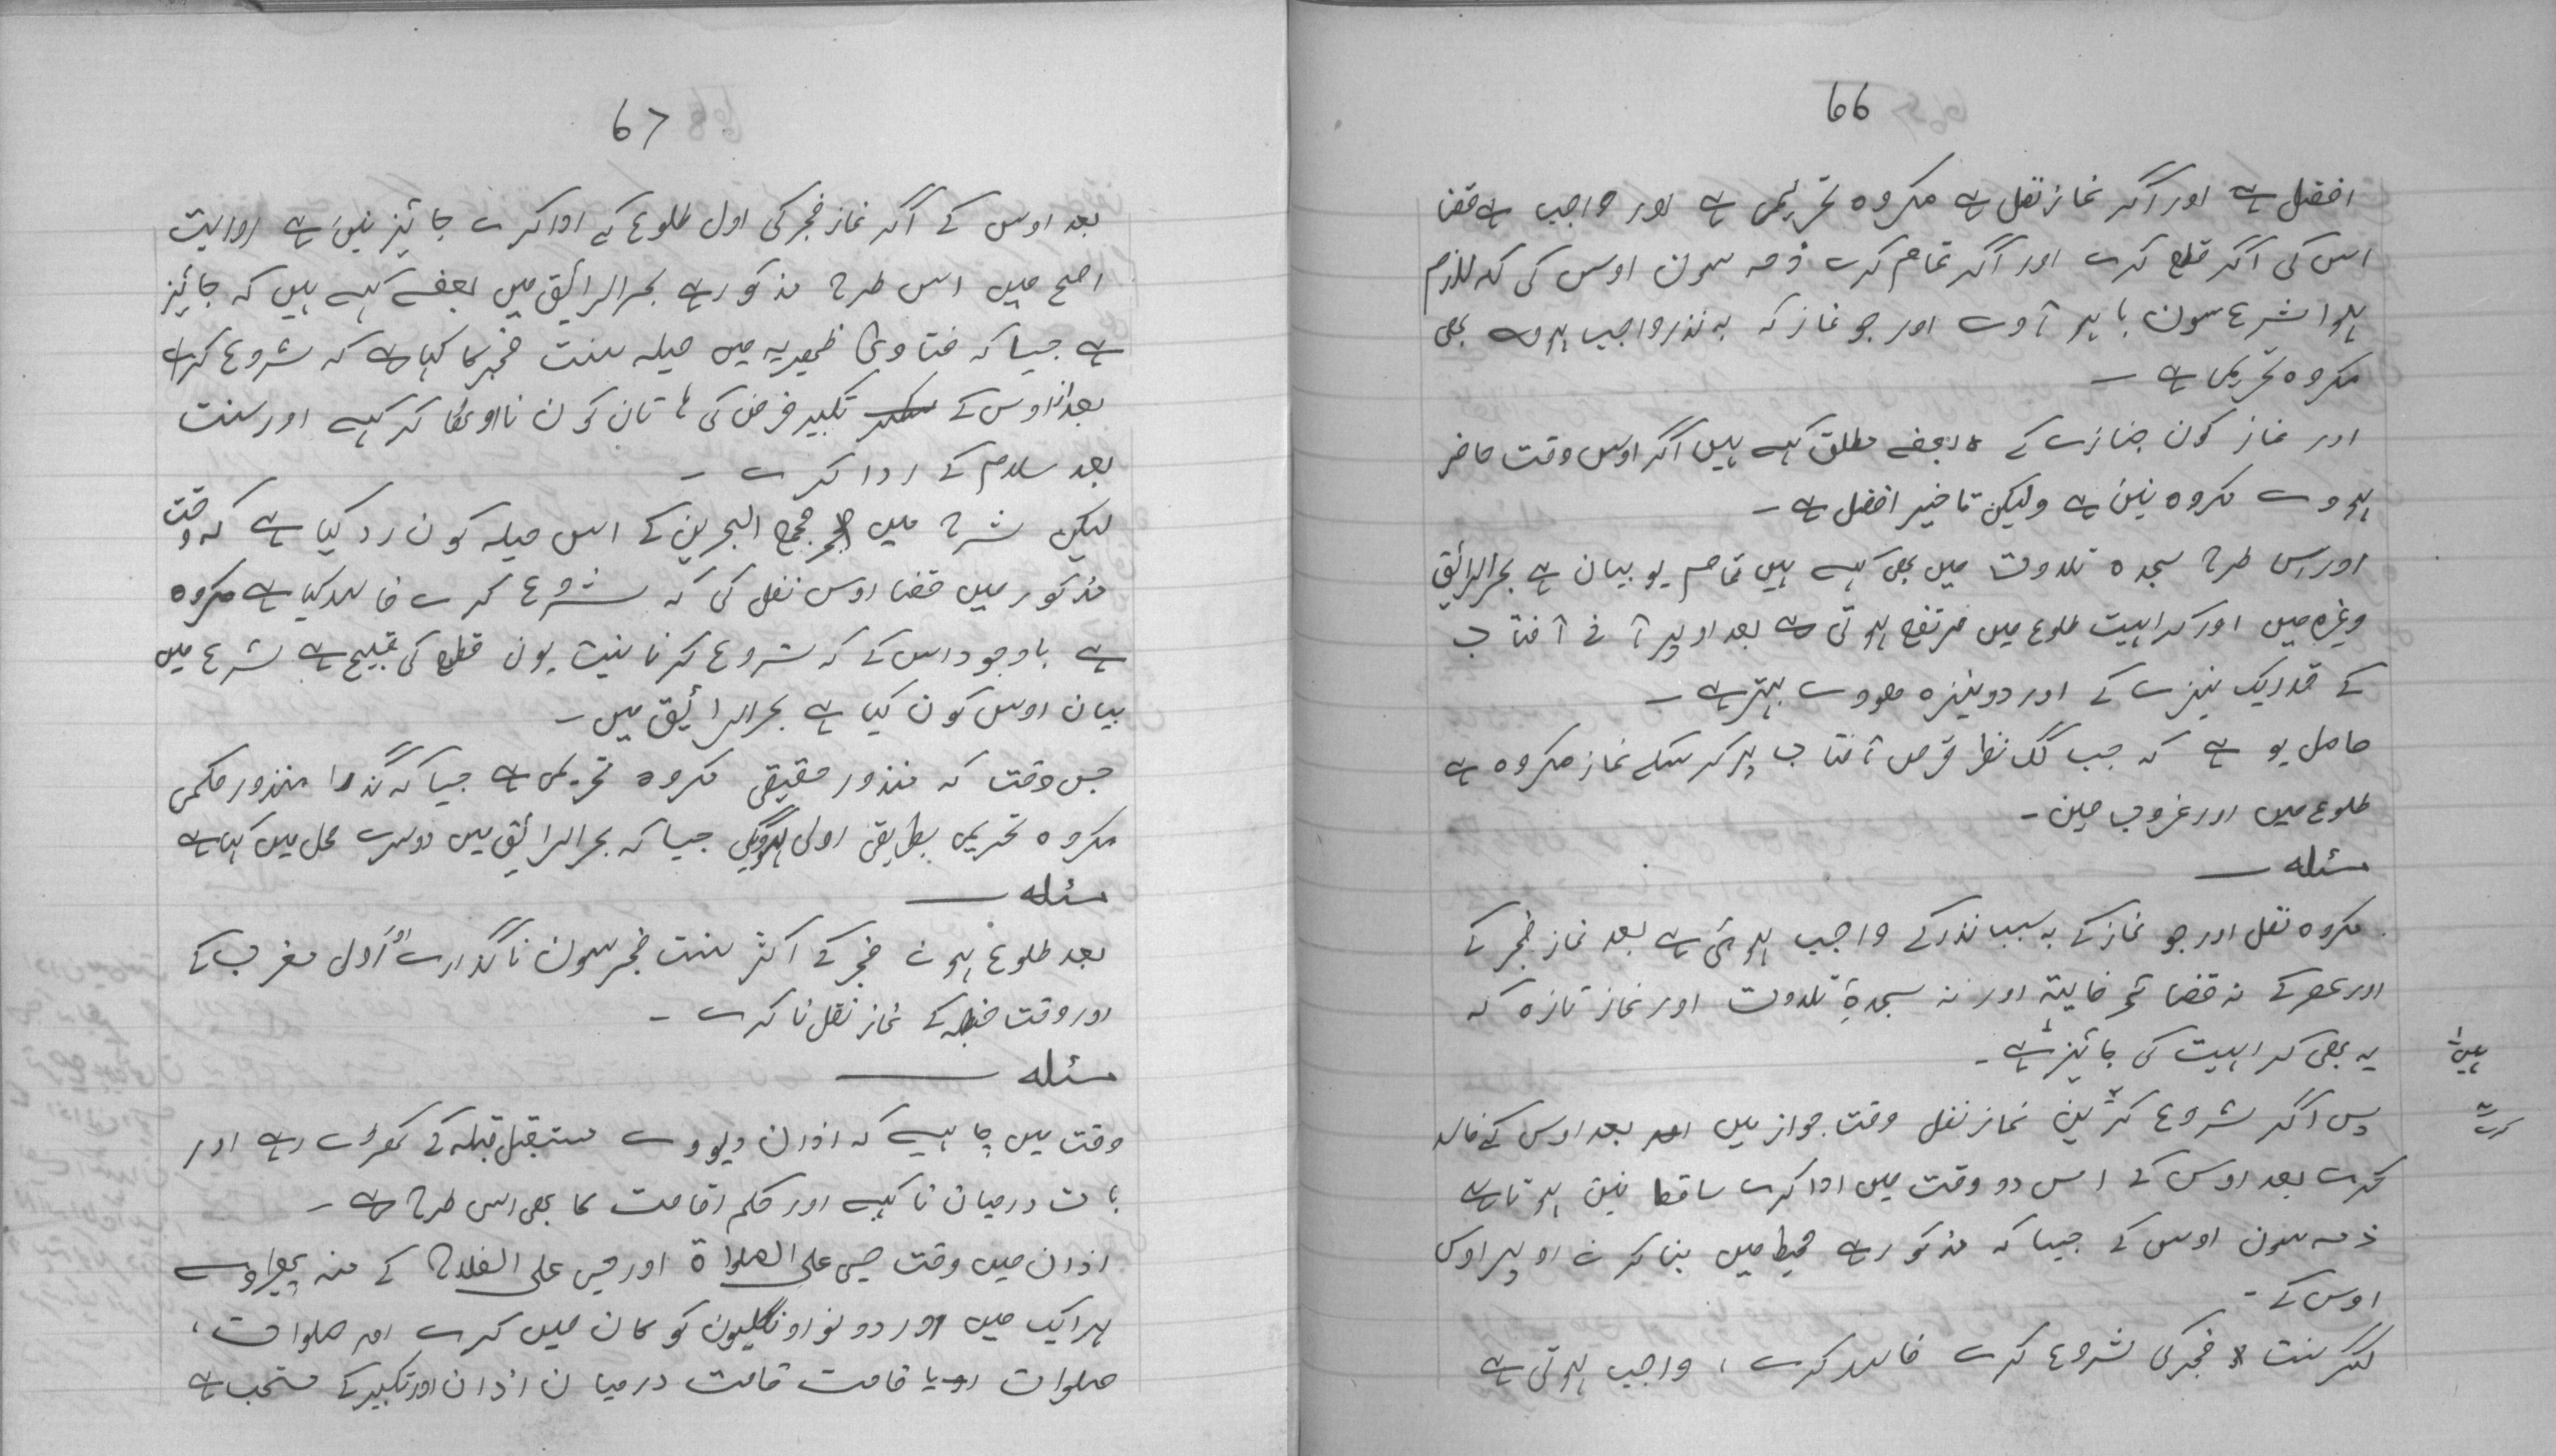 66
افضل ہے اور اگر نماز نفل ہے مکروہ تحریمی ہے اور واجب ہے قضا
اس کی اگر قطع کرے اور اگر تمام کرے ذمہ سون اوس کی کہ لازم
ہوا شرع سون باہر آوے اور جو نماز کہ بہ نذر واجب ہووے بھی
مکروہ تحریمی ہے ۔
اور نماز کون جنازے کے بعضے مطلق کہے ہیں اگر اوس وقت حاضر
ہووے مکروہ نین ہے ولیکن تاخیر افضل ہے ۔
اور اس طرح سجدہ تلاوت میں بھی کہے ہیں تمام یو بیان ہے بحر الرائق
وغیرہ میں اور کراہیت طلوع میں مرتفع ہوتی ہے بعد اوپر آنے آفتاب
کے قدر ایک نیزے کے اور دو نیزہ ہووے بہتر ہے ۔
حاصل یو ہے کہ جب لگ نظر قرص آفتاب پر کر سکے نماز مکروہ ہے
طلوع میں اور غروب میں ۔
مسئلہ
مکروہ نفل اور جو نماز کے بہ سبب نذر کے واجب ہوئی ہے بعد نماز فجر کے
اور عصر کے نہ قضا فایتہ اور نہ سجدۂ تلاوت اور نماز تازہ کہ
یہ بھی کراہیت کی جائیز ہے ۔
ہین
پس اگر شروع کرین نماز نفل وقت جواز میں بعد اوس کے فاسد
کرے
کرے بعد اوس کے اس دو وقت میں ادا کرے ساقط نین ہوتا ہے
ذمہ سون اوس کے جیسا کہ مذکور ہے محیط میں بنا کرنے اوپر اوس
اوس کے ۔
سنت فجر کی شروع کرے فاسد کرے ، واجب ہوتی ہے
67
بعد اوس کے اگر نماز فجر کی اول طلوع کے ادا کرے جائیز نین ہے روایت
اصح میں اس طرح مذکور ہے بحر الرائیق میں بعضے کہے ہیں کہ جائیز
ہے جیسا کہ فتاوی ظہیریہ میں حیلہ سنت فجر کا کہا ہے کہ شروع کرے
بعد ازاوس کے تکبیر فرض کی تان کون نا اوٹھا کر کہے اور سنت
بعد سلام کے ادا کرے ۔
لیکن شرح میں مجمع البحرین کے اس حیلہ کون رد کیا ہے کہ وقت
مذکور میں قضا اوس نفل کی کہ شروع کرے فاسد کیا ہے مکروہ
ہے باوجود اس کے کہ شروع کرنا نیت یون قطع کی قبیح ہے شرع میں
بیان اوس کون کیا ہے بحر الرائیق میں ۔
جس وقت کہ منذور حقیقی مکروہ تحریمی ہے جیسا کہ گذرا منذور حکمی
مکروہ تحریمی بطریق اولی ہوویگی جیسا کہ بحر الرائق میں دوسرے محل میں کہا ہے
مسئلہ
بعد طلوع ہونے فجر کے اکثر سنت فجر سون نا گذارے اور اول مغرب کے
اور وقت خطبہ کے نماز نفل نا کرے ۔
مسئلہ
وقت میں چاہیے کہ اذان دیووے مستقبل قبلہ کے کھڑے رہے اور
بات درمیان نا کہے اور حکم اقامت کا بھی اس طرح ہے ۔
اذان میں وقت حی علی الصلواۃ اور حی علی الفلاح کے منہ پھراوے
ہر ایک میں اور دونو اونگلیون کو کان میں کرے اور صلوات ،
صلوات یا قامت قامت درمیان اذان اور تکبیر کے مستحب ہے